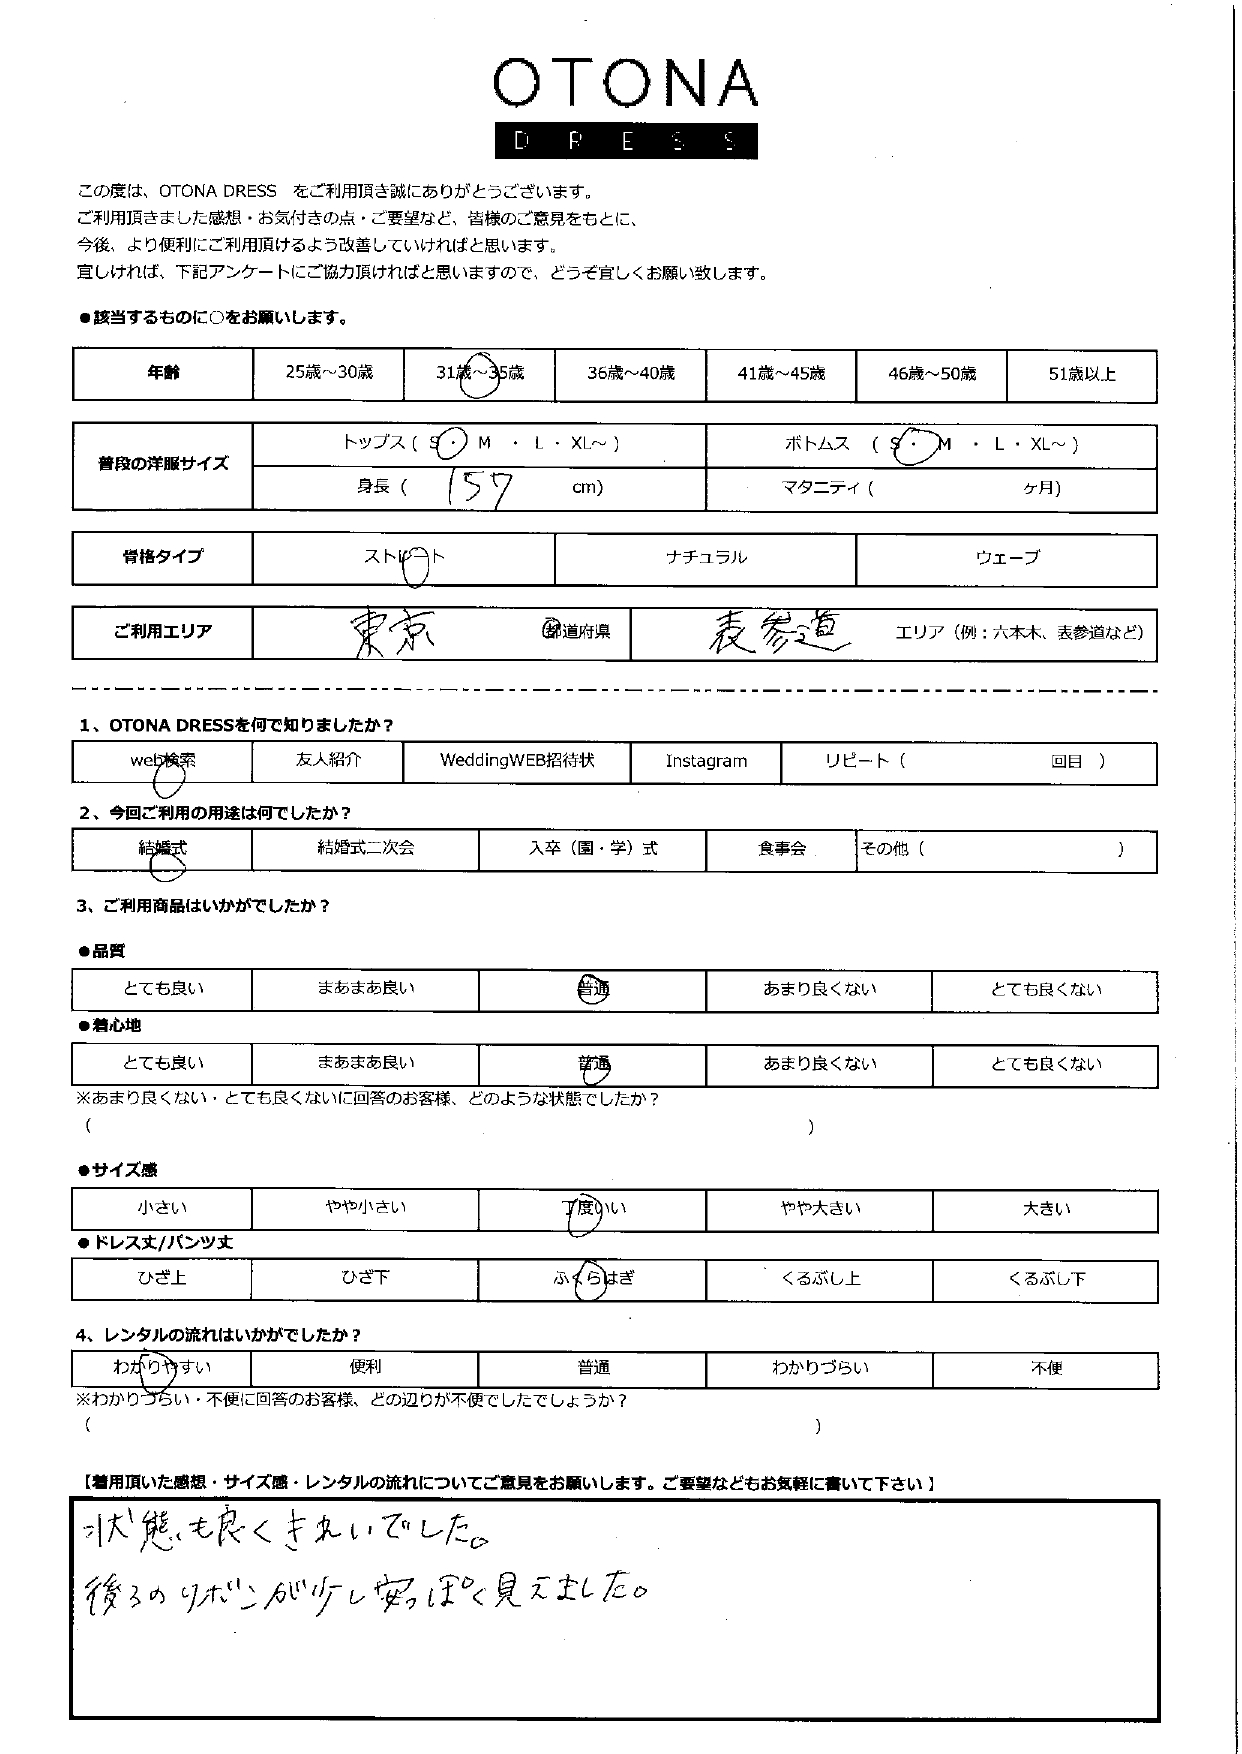 OTONA
DRESS
この度は、OTONA DRESS をご利用頂き誠にありがとうございます。
ご利用頂きました感想・お気付きの点・ご要望など、皆様のご意見をもとに、
今後、より便利にご利用頂けるよう改善していければと思います。
宜しければ、下記アンケートにご協力頂ければと思いますので、どうぞ宜しくお願い致します。
●該当するものに○をお願いします。
年齢 25歳～30歳 31歳～35歳 36歳～40歳 41歳～45歳 46歳～50歳 51歳以上
普段の洋服サイズ トップス ( S ・ M ・ L ・ XL～ ) ボトムス ( S ・ M ・ L ・ XL～ )
身長 ( 157 cm) マタニティ ( ヶ月)
骨格タイプ ストレート ナチュラル ウェーブ
ご利用エリア 東京 都道府県 表参道 エリア（例：六本木、表参道など）
1、OTONA DRESSを何で知りましたか？
web検索 友人紹介 WeddingWEB招待状 Instagram リピート（ 回目 ）
2、今回ご利用の用途は何でしたか？
結婚式 結婚式二次会 入卒（園・学）式 食事会 その他（ ）
3、ご利用商品はいかがでしたか？
●品質
とても良い まあまあ良い 普通 あまり良くない とても良くない
●着心地
とても良い まあまあ良い 普通 あまり良くない とても良くない
※あまり良くない・とても良くないに回答のお客様、どのような状態でしたか？
( )
●サイズ感
小さい やや小さい 丁度いい やや大きい 大きい
●ドレス丈/パンツ丈
ひざ上 ひざ下 ふくらはぎ くるぶし上 くるぶし下
4、レンタルの流れはいかがでしたか？
わかりやすい 便利 普通 わかりづらい 不便
※わかりづらい・不便に回答のお客様、どの辺りが不便でしたでしょうか？
( )
【着用頂いた感想・サイズ感・レンタルの流れについてご意見をお願いします。ご要望などもお気軽に書いて下さい】
状態も良くきれいでした。
後ろのリボンが少し安っぽく見えました。